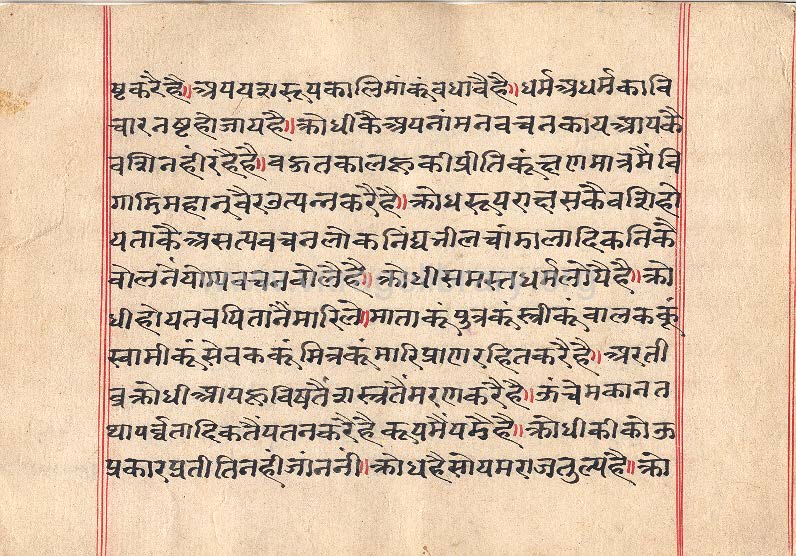 ष्टकरैहै॥अपयशरूपकालिमांकूंवधावैहै॥धर्मअधर्मकावि
चारनष्टहोजायहै॥क्रोधीकैअपनांमनवचनकायआपकै
वशिनहींरहैहै॥वऊतकालहूकीप्रीतिकूंक्षणमात्रमैंवि
गाडिमहानवैरउत्पन्नकरैहै॥क्रोधरूपराक्षसकैवशिहो
यताकैअसत्यवचनलोकनिंद्यभीलचांडालादिकनिकै
वोलनेंयोग्यवचनवोलैहै॥क्रोधीसमस्तधर्मलोपैहै॥क्रो
धीहोयतवपितानैंमारिले॥माताकूंपुत्रकूंस्त्रीकूंवालककूं
स्वामीकूंसेवककूंमित्रकूंमारिप्राणरहितकरैहै॥अरती
व्रक्रोधीआपहूविषतैंशस्त्रतैंमरणकरैहै॥ऊंचेमकानत
थापर्व्वतादिकतैंपतनकरैहैकूपमैंपडैहै॥क्रोधीकीकोऊ
प्रकारप्रतीतिनहींजांननीं॥क्रोधहैसोयमराजतुल्यहै॥क्रो